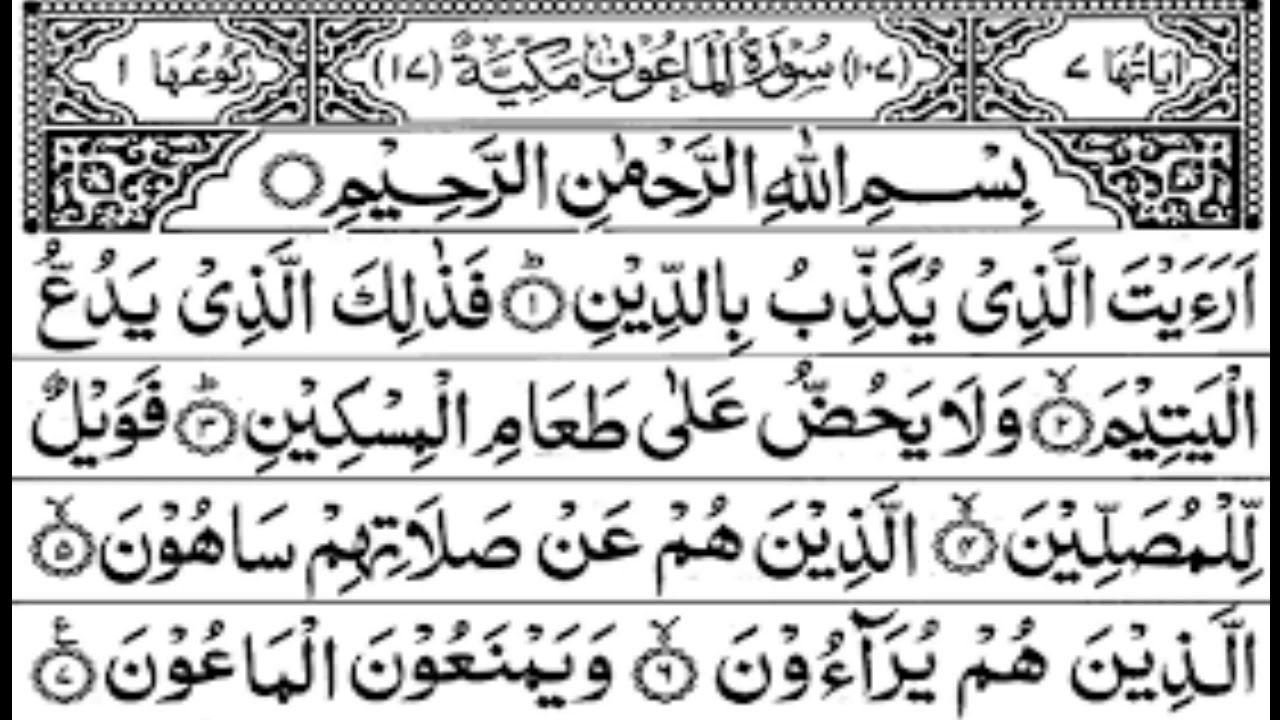 اٰيَاتُهَا ٧ (١٠٧) سُوْرَةُ الْمَاعُوْنِ مَكِّيَّةٌ (١٧) رُكُوْعُهَا ١
بِسْمِ اللّٰهِ الرَّحْمٰنِ الرَّحِيْمِ ۝
اَرَءَيْتَ الَّذِىْ يُكَذِّبُ بِالدِّيْنِ ؕ۝١ فَذٰلِكَ الَّذِىْ يَدُعُّ
الْيَتِيْمَ ۙ۝٢ وَلَا يَحُضُّ عَلٰى طَعَامِ الْمِسْكِيْنِ ؕ۝٣ فَوَيْلٌ
لِّلْمُصَلِّيْنَ ۙ۝٤ الَّذِيْنَ هُمْ عَنْ صَلَاتِهِمْ سَاهُوْنَ ۙ۝٥
الَّذِيْنَ هُمْ يُرَآءُوْنَ ۙ۝٦ وَيَمْنَعُوْنَ الْمَاعُوْنَ ࣖ۝٧